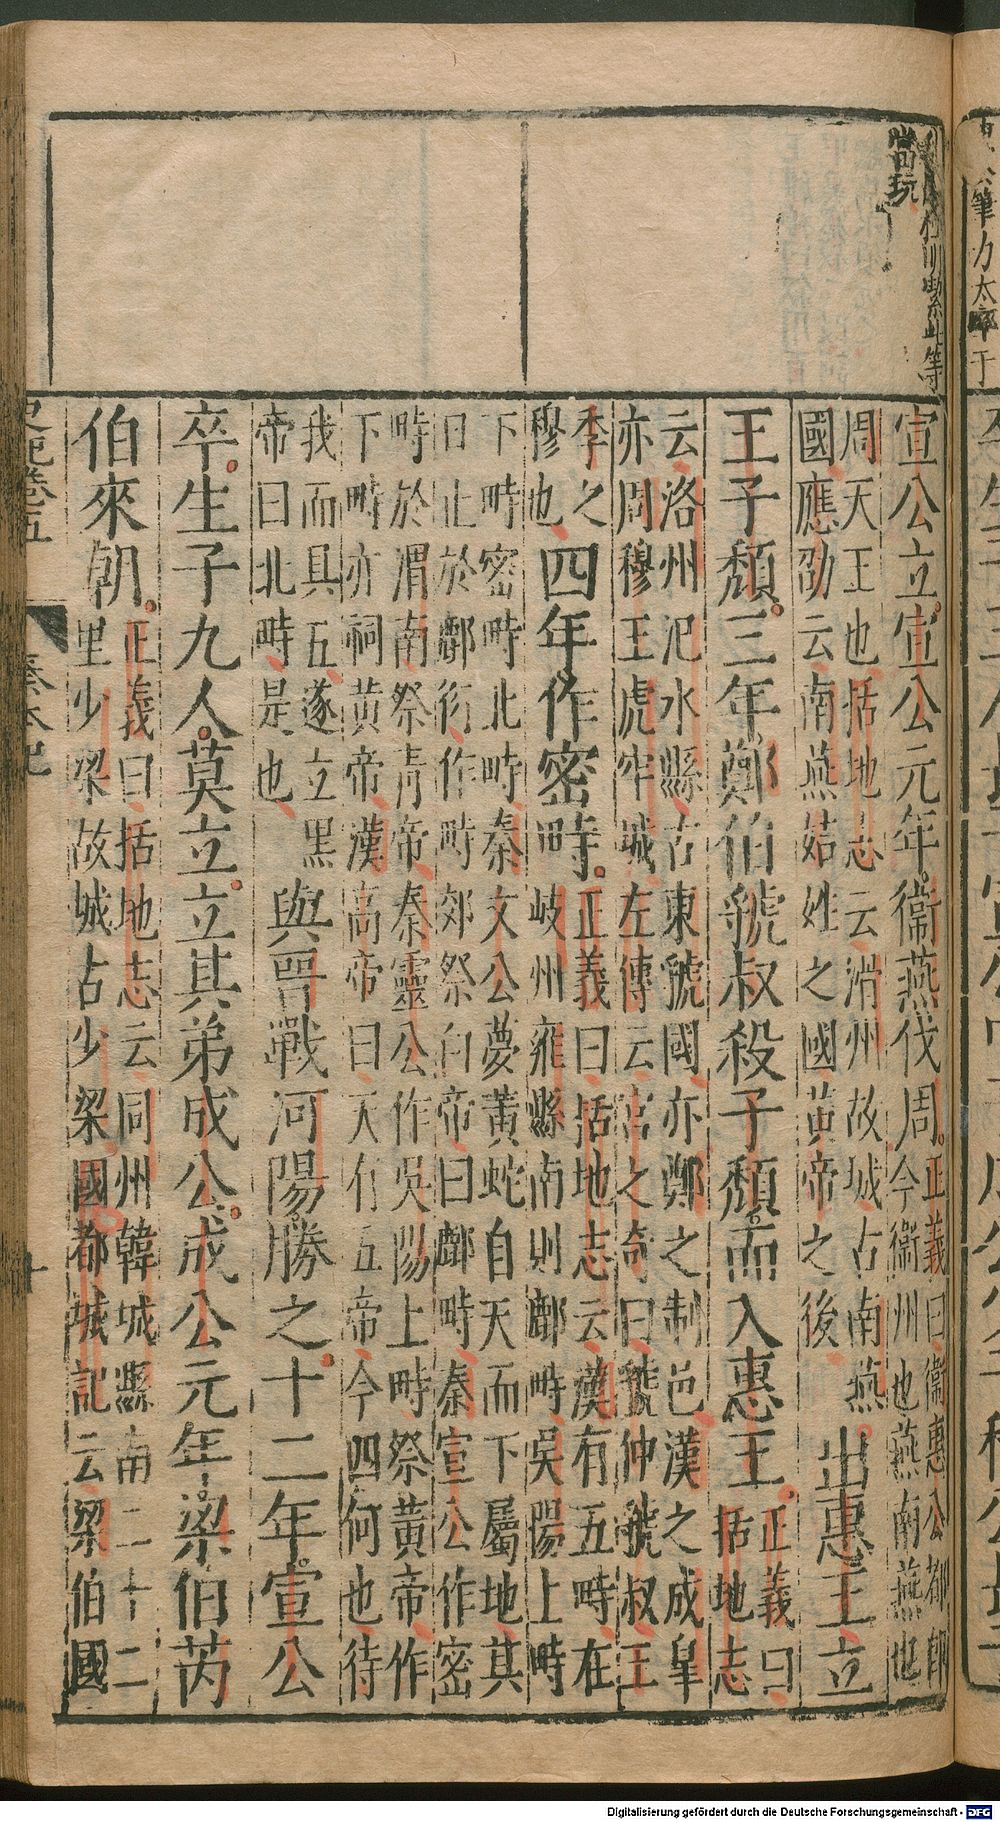 等
當玩
宣公立宣公元年衞燕伐周
正義曰衞惠公都即
今衞州也燕南燕也
周天王也括地志云滑州故城古南燕
國應劭云南燕姞姓之國黄帝之後
出惠王立
王子頹三年鄭伯虢叔殺子頹而入惠王
正義曰
括地志
云洛州汜水縣古東虢國亦鄭之制邑漢之成皐
亦周穆王虎牢城左傳云宮之奇曰虢仲虢叔王
季之
穆也
四年作密畤
正義曰括地志云漢有五畤在
岐州雍縣南則鄜畤吳陽上畤
下畤密畤北畤秦文公夢黄蛇自天而下屬地其
口止於鄜衍作畤郊祭白帝曰鄜畤秦宣公作密
畤於渭南祭青帝秦靈公作吳陽上畤祭黄帝作
下畤亦祠黄帝漢高帝曰天有五帝今四何也待
我而具五遂立黑
帝曰北畤是也
與晉戰河陽勝之十二年宣公
卒生子九人莫立立其弟成公成公元年梁伯芮
伯來朝
正義曰括地志云同州韓城縣南二十二
里少梁故城古少梁國都城記云梁伯國
史記卷五 秦本紀 十
Digitalisierung gefördert durch die Deutsche Forschungsgemeinschaft - DFG